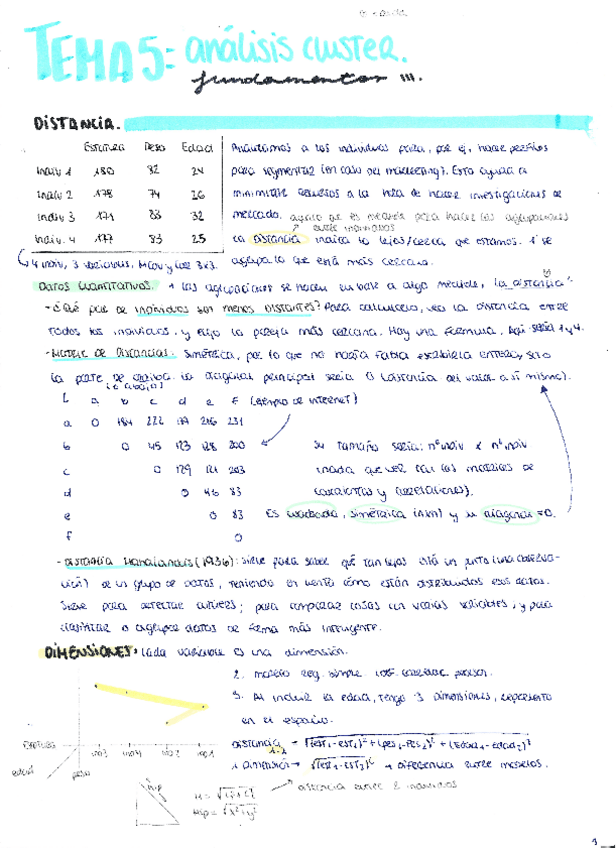 TEMA 5: análisis cluster.
fundamentos III.
DISTANCIA.
Estatura Peso Edad
Indiv 1 180 82 24
Indiv 2 178 74 26
Indiv 3 171 88 32
Indiv. 4 177 83 25
↳ 4 indiv, 3 variables, Mcov y cor 3x3.
Analizamos a los individuos para, por ej, hacer perfiles
para segmentar (en caso del marketing). Esto ayuda a
minimizar recursos a la hora de hacer investigaciones de
mercado.
entre individuos
La distancia indica lo lejos/cerca que estamos. Y se
agrupa lo que está más cercano.
DATOS CUANTITATIVOS. + las agrupaciones se hacen en base a algo medible, "la distancia".
- ¿Qué par de individuos son menos distantes? Para calcularlo, veo la distancia entre
todos los individuos, y elijo la pareja más cercana. Hay una fórmula. Aquí sería 1 y 4.
- MATRIZ DE DISTANCIAS: simétrica, por lo que no haría falta escribirla entera, solo
la parte de arriba. La diagonal principal sería 0 (distancia del valor a sí mismo).
(o abajo)
a b c d e f (ejemplo de internet)
a 0 184 222 177 216 231
b 0 45 123 128 200
c 0 129 121 203
d 0 46 83
e 0 83
f 0
Su tamaño sería: nº indiv x nº indiv
(nada que ver con las matrices de
covarianzas y correlaciones).
Es cuadrada, simétrica (nxn) y su diagonal = 0.
- DISTANCIA Mahalanobis (1936): sirve para saber qué tan lejos está un punto (una observa-
ción) de un grupo de datos, teniendo en cuenta cómo están distribuidos esos datos.
Sirve para detectar outliers; para comparar cosas con varias variables; y para
clasificar o agrupar datos de forma más inteligente.
DIMENSIONES: cada variable es una dimensión.
2. modelo reg. simple
3. Al incluir la edad, tengo 3 dimensiones, represento
en el espacio.
distancia 1-2 = √(est₁-est₂)²+(pes₁-pes₂)²+(edad₁-edad₂)²
1 dimensión → √(est₁-est₂)² → diferencia entre
→ distancia entre 2 individuos
estatura
edad
peso
ind 3 ind 4 ind 2 ind 1
hip
hip = √x²+y²